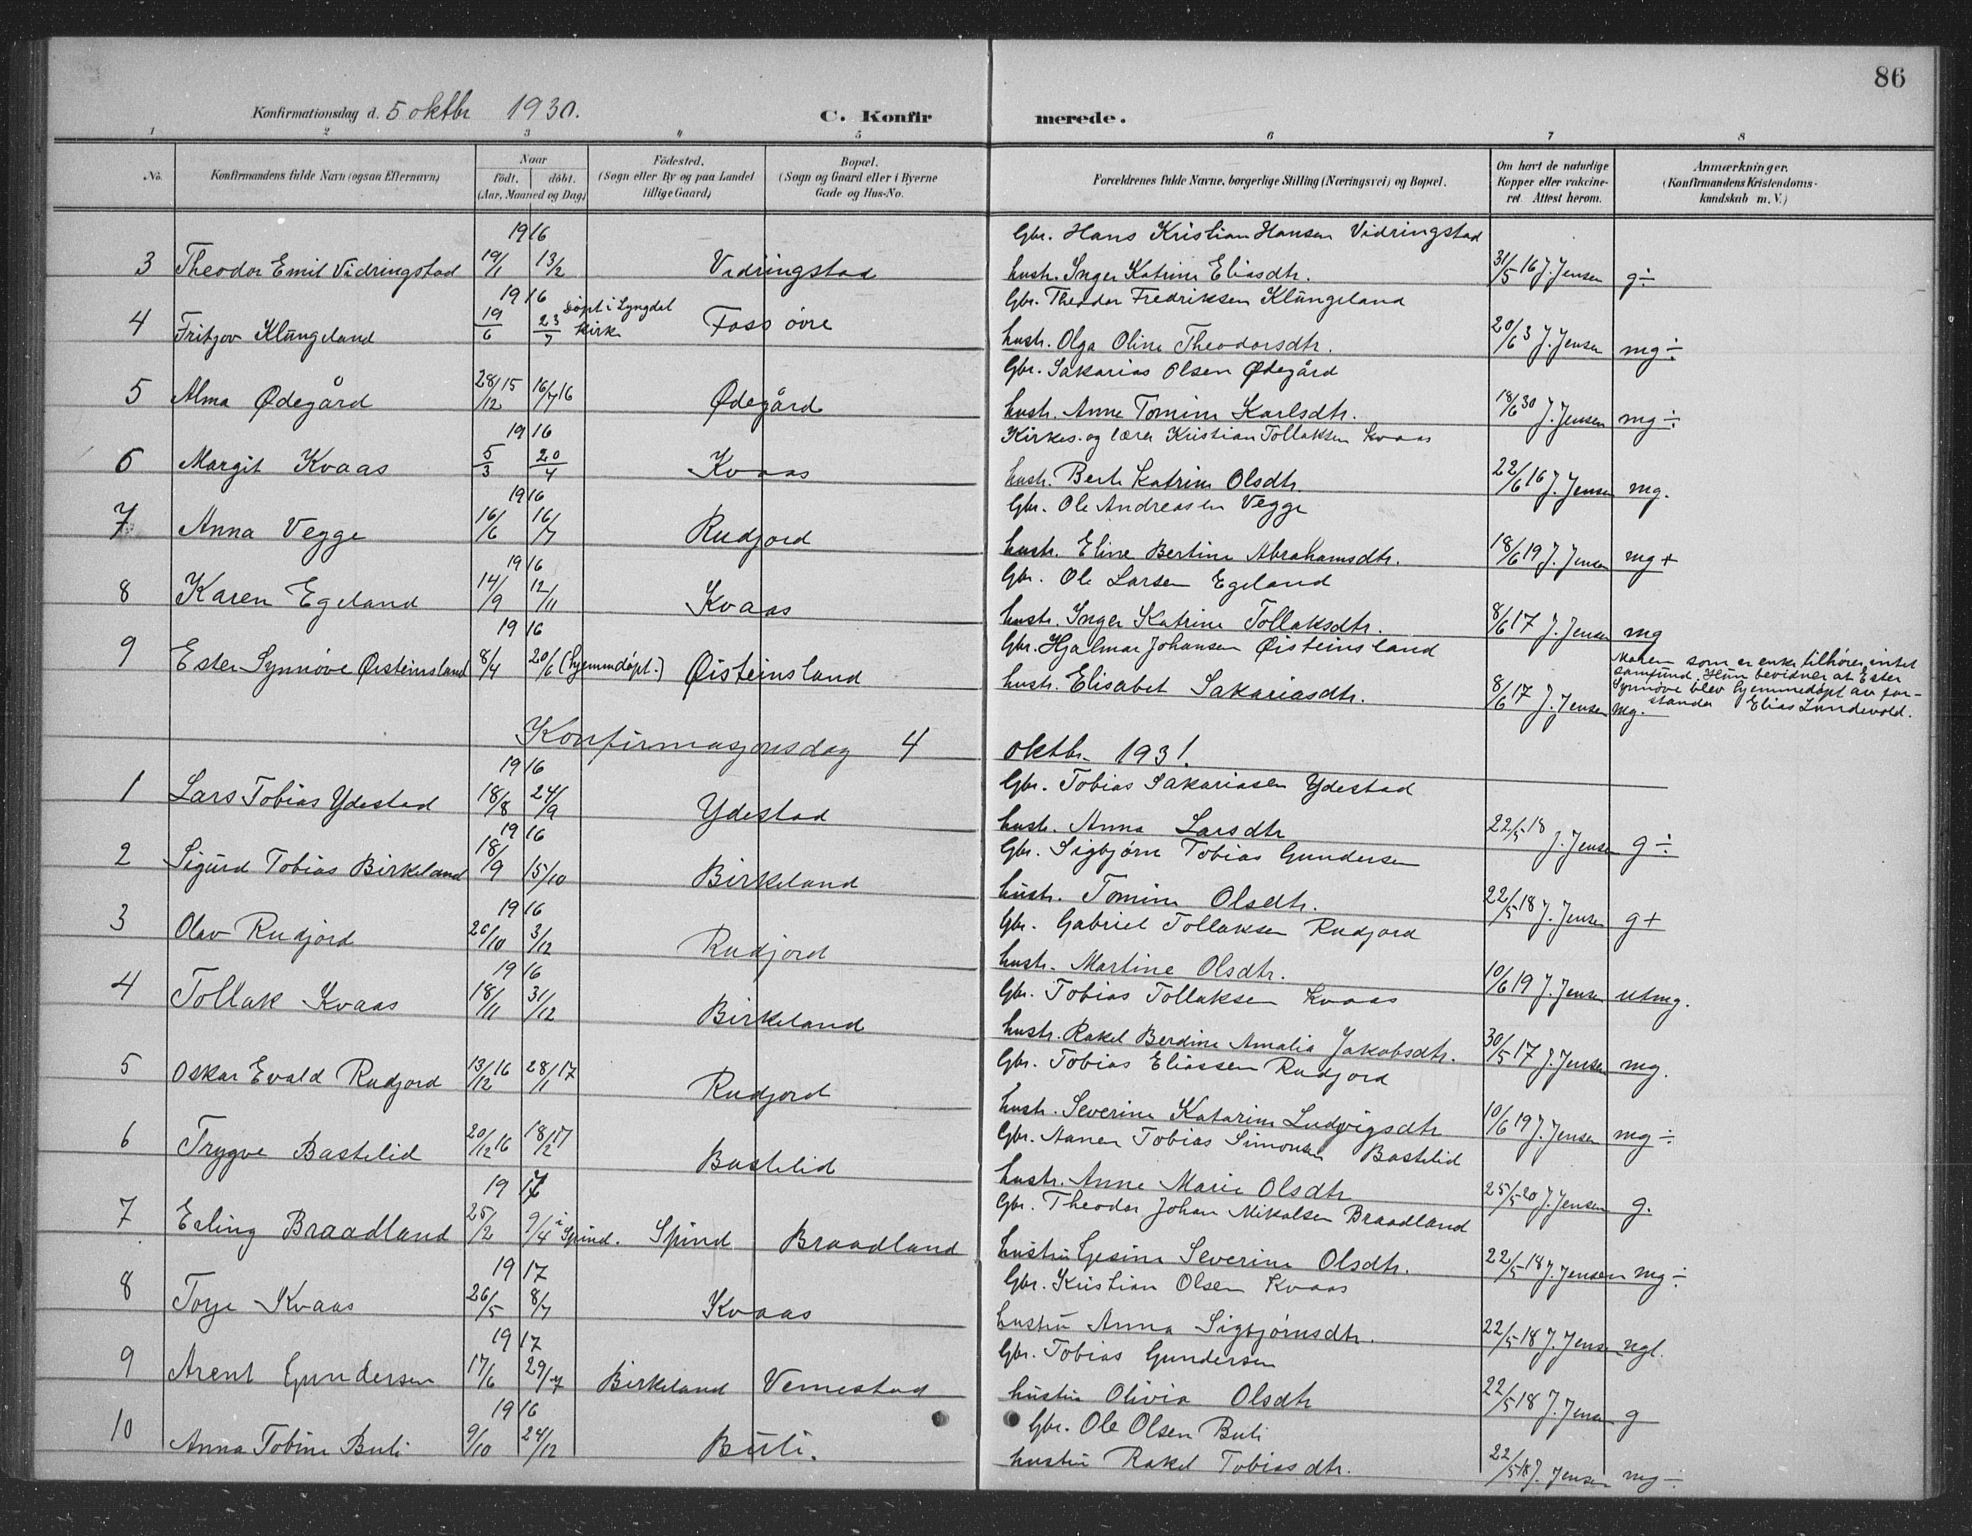 86
Konfirmationsdag d. 5 oktbr 1930. C. Konfirmerede.
1 2 3 4 5 6 7 8
No. Konfirmandens fulde Navn (ogsaa Efternavn) Naar födt. döbt. (Aar, Maaned og Dag) Födested. (Sogn eller By og paa Landet tillige Gaard) Bopæl. (Sogn og Gaard eller i Byerne Gade og Hus-No. Forældrenes fulde Navne, borgerlige Stilling (Næringsvei) og Bopæl. Om havt de naturlige Kopper eller vakcineret. Attest herom. Anmærkninger. (Konfirmandens Kristendomskundskab m. V.)
1916 Gbr. Hans Kristian Hansen Vidringstad
3 Theodor Emil Vidringstad 19/1 13/2 Vidringstad hustr. Inger Katrine Eliasdtr. 31/5 16 J. Jensen g÷
1916 døpt i Lyngdal kirk Gbr. Theodor Fredriksen Klungeland
4 Fritjov Klungeland 19/6 23/7 Foss øvre hustr. Olga Oline Theodorsdtr. 20/6 3 J. Jensen mg÷
Gbr. Sakarias Olsen Ødegård
5 Alma Ødegård 28/12 15 16/7 16 Ødegård hustr. Anne Tomine Karlsdtr. 18/6 30 J. Jensen mg÷
1916 Kirkes. og lærer Kristian Tollaksen Kvaas
6 Margit Kvaas 5/3 20/4 Kvaas hustr. Berte Katrine Olsdtr. 22/6 16 J. Jensen mg.
1916 Gbr. Ole Andreassen Vegge
7 Anna Vegge 16/6 16/7 Rudjord hustr. Eline Bertine Abrahamsdtr. 18/6 19 J. Jensen mg+
1916 Gbr. Ole Larsen Egeland
8 Karen Egeland 14/9 12/11 Kvaas hustr. Inger Katrine Tollaksdtr. 8/6 17 J. Jensen mg
1916 Gbr. Hjalmar Johansen Øisteinsland
9 Ester Synnøve Øisteinsland 8/4 20/6 (hjemmdøpt.) Øisteinsland hustr. Elisabet Sakariasdtr. 8/6 17 J. Jensen mg.
Moren som er enke tilhører intet
samfund. Hun bevidner at Ester
Synnøve blev hjemmedøpt av for-
stander Elias Lundevold.
Konfirmasjonsdag 4 oktbr. 1931.
1916 Gbr. Tobias Sakariasen Ydestad
1 Lars Tobias Ydestad 18/8 24/9 Ydestad hustr. Anna Larsdtr 22/5 18 J. Jensen g÷
1916 Gbr. Sigbjørn Tobias Gundersen
2 Sigurd Tobias Birkeland 18/9 15/10 Birkeland hustr. Tomine Olsdtr. 22/5 18 J. Jensen g+
1916 Gbr. Gabriel Tollaksen Rudjord
3 Olav Rudjord 26/10 3/12 Rudjord hustr. Martine Olsdtr. 10/6 19 J. Jensen utmg.
1916 Gbr. Tobias Tollaksen Kvaas
4 Tollak Kvaas 18/11 31/12 Birkeland hustr. Rakel Berdine Amalia Jakobsdtr. 30/5 17 J. Jensen mg.
Gbr. Tobias Eliassen Rudjord
5 Oskar Evald Rudjord 13/12 16 28/1 17 Rudjord hustr. Severine Katarine Ludvigsdtr 10/6 19 J. Jensen mg÷
Gbr. Aanen Tobias Simonsen Bastelid
6 Trygve Bastelid 20/12 16 18/2 17 Bastelid hustr. Anne Marie Olsdtr 25/5 20 J. Jensen g.
1917 Gbr. Theodor Johan Mikalsen Braadland
7 Erling Braadland 25/2 9/4 i Spind. Spind Braadland hustru Gesine Severine Olsdtr. 22/5 18 J. Jensen mg÷
1917 Gbr. Kristian Olsen Kvaas
8 Torje Kvaas 26/5 8/7 Kvaas hustru Anna Sigbjørnsdtr. 22/5 18 J. Jensen ngl.
1917 Gbr. Tobias Gundersen
9 Arent Gundersen 17/6 29/7 Birkeland Vemestad hustru Olivia Olsdtr 22/5 18 J. Jensen g
1916 Gbr. Ole Olsen Buli
10 Anna Tobine Buli 9/10 24/12 Buli. hustru Rakel Tobiasdtr. 22/5 18 J. Jensen mg÷